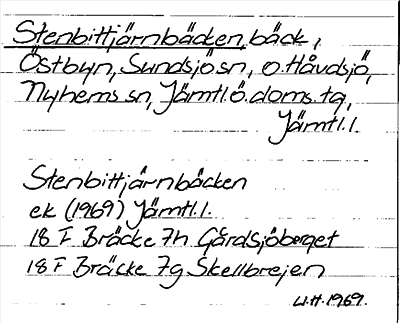 Stenbittjärnbäcken, bäck,
Östbyn, Sundsjö sn, o. Håvdsjö,
Nyhems sn, Jämtl. ö. doms. tg,
Jämtl. l.
Stenbittjärnbäcken
ek (1969) Jämtl. l.
18 F Bräcke 7h Gårdsjöberget
18 F Bräcke 7g Skellbrejen
U.H. 1969.